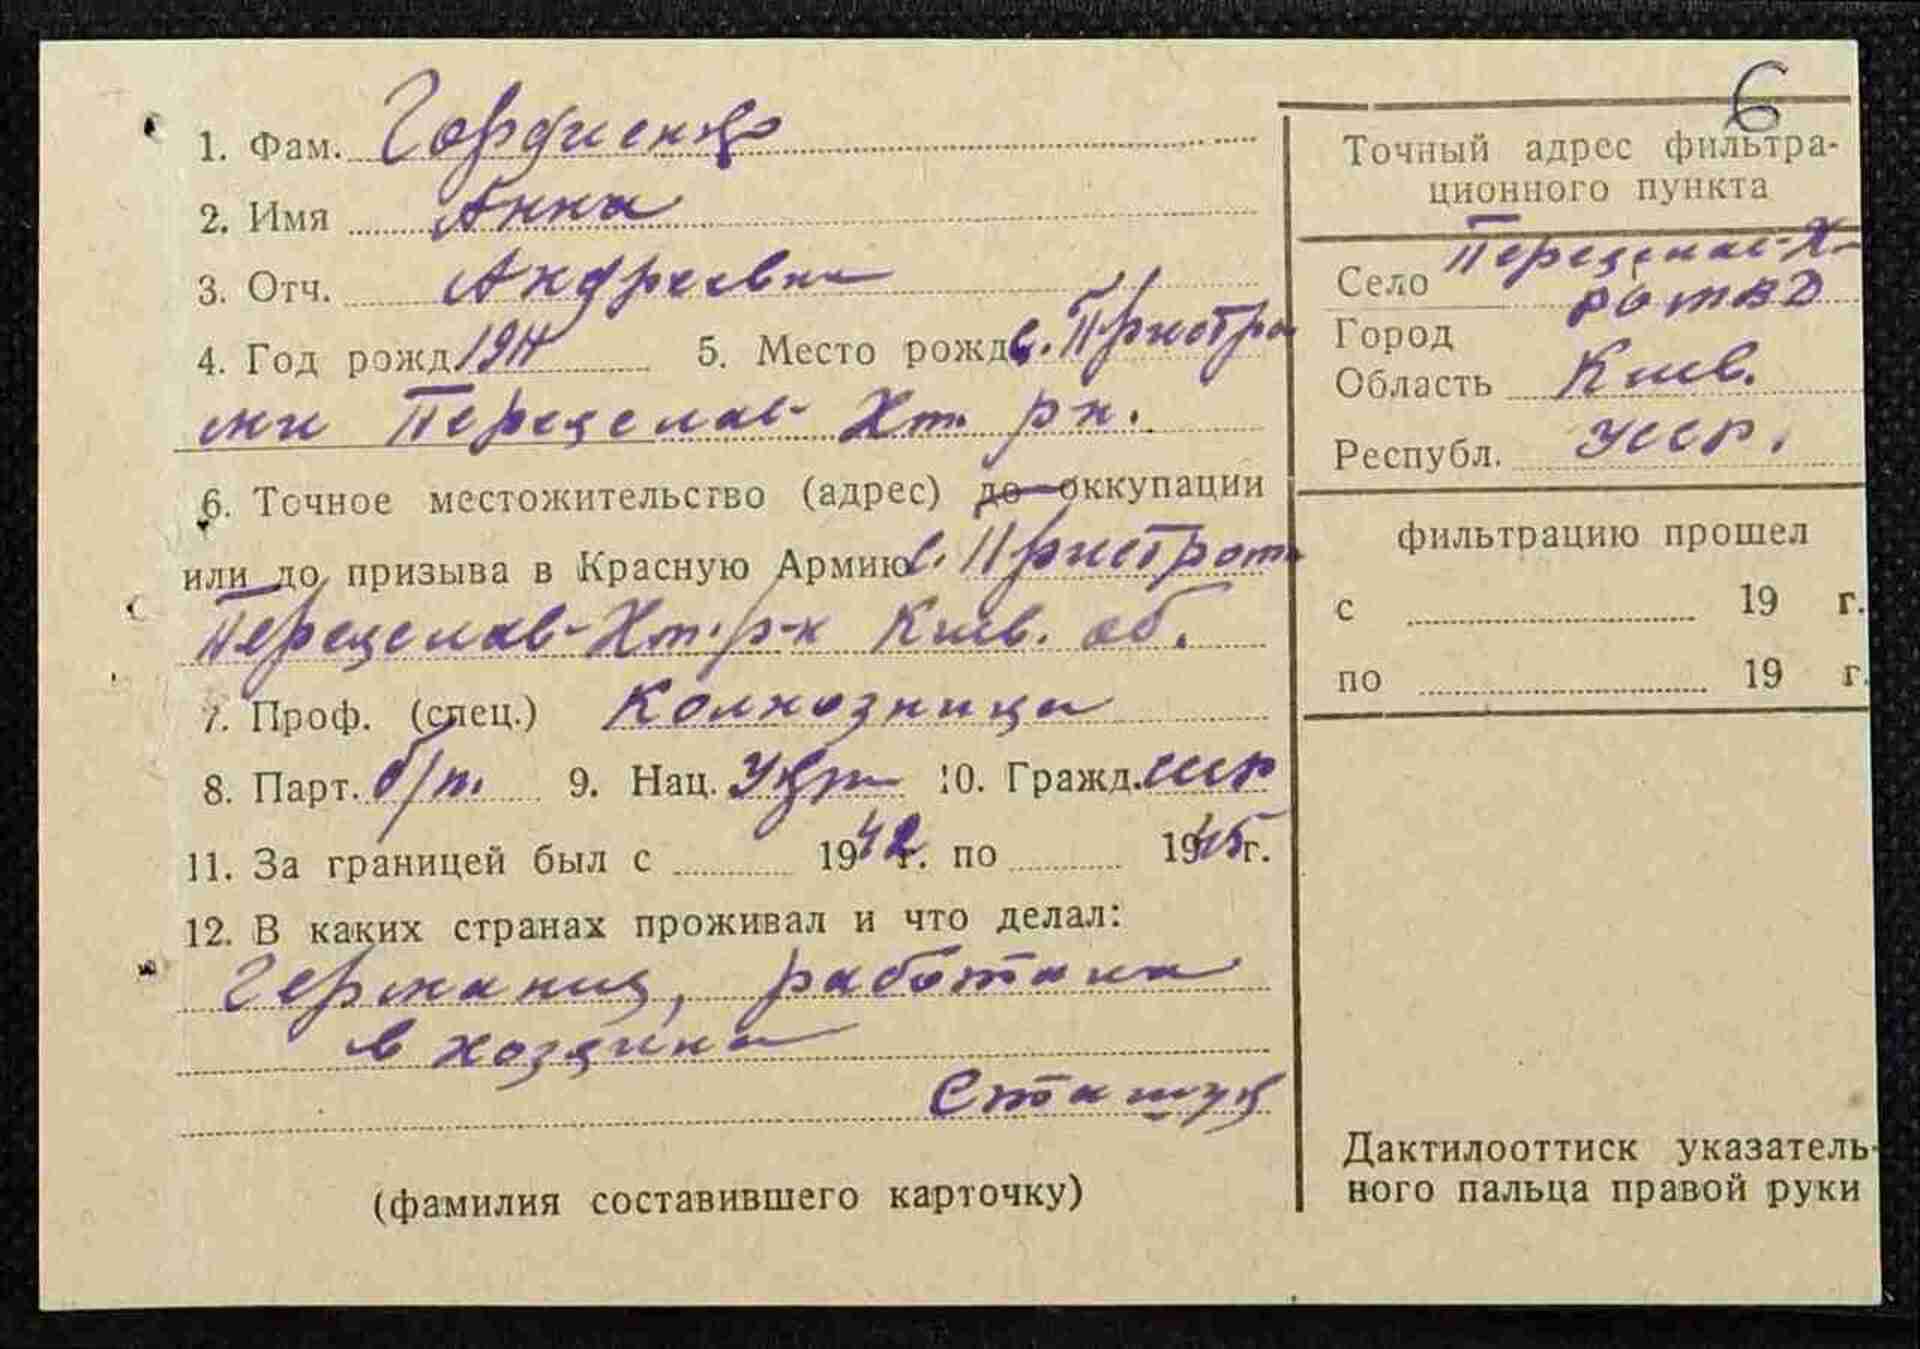 6
1. Фам. Гордиенко
2. Имя Анна
3. Отч. Андреевна
4. Год рожд 5. Место рожд с. Пристро
ми Переяслав-Хм. рн.
6. Точное местожительство (адрес) до оккупации
или до призыва в Красную Армию с. Пристром
Переяслав-Хм. р-н Киев. об.
7. Проф. (спец.) Колхозница
8. Парт. б/п. 9. Нац. Укр 10. Гражд. СССР
11. За границей был с 1942 г. по 1945 г.
12. В каких странах проживал и что делал:
Германия, работала
в хозяина
Сташук
(фамилия составившего карточку)
Точный адрес фильтра-
ционного пункта
Село Переяслав-Х-
РОМВД
Город
Область Киев.
Республ. УССР.
фильтрацию прошел
с 19 г.
по 19 г.
Дактилооттиск указатель-
ного пальца правой руки